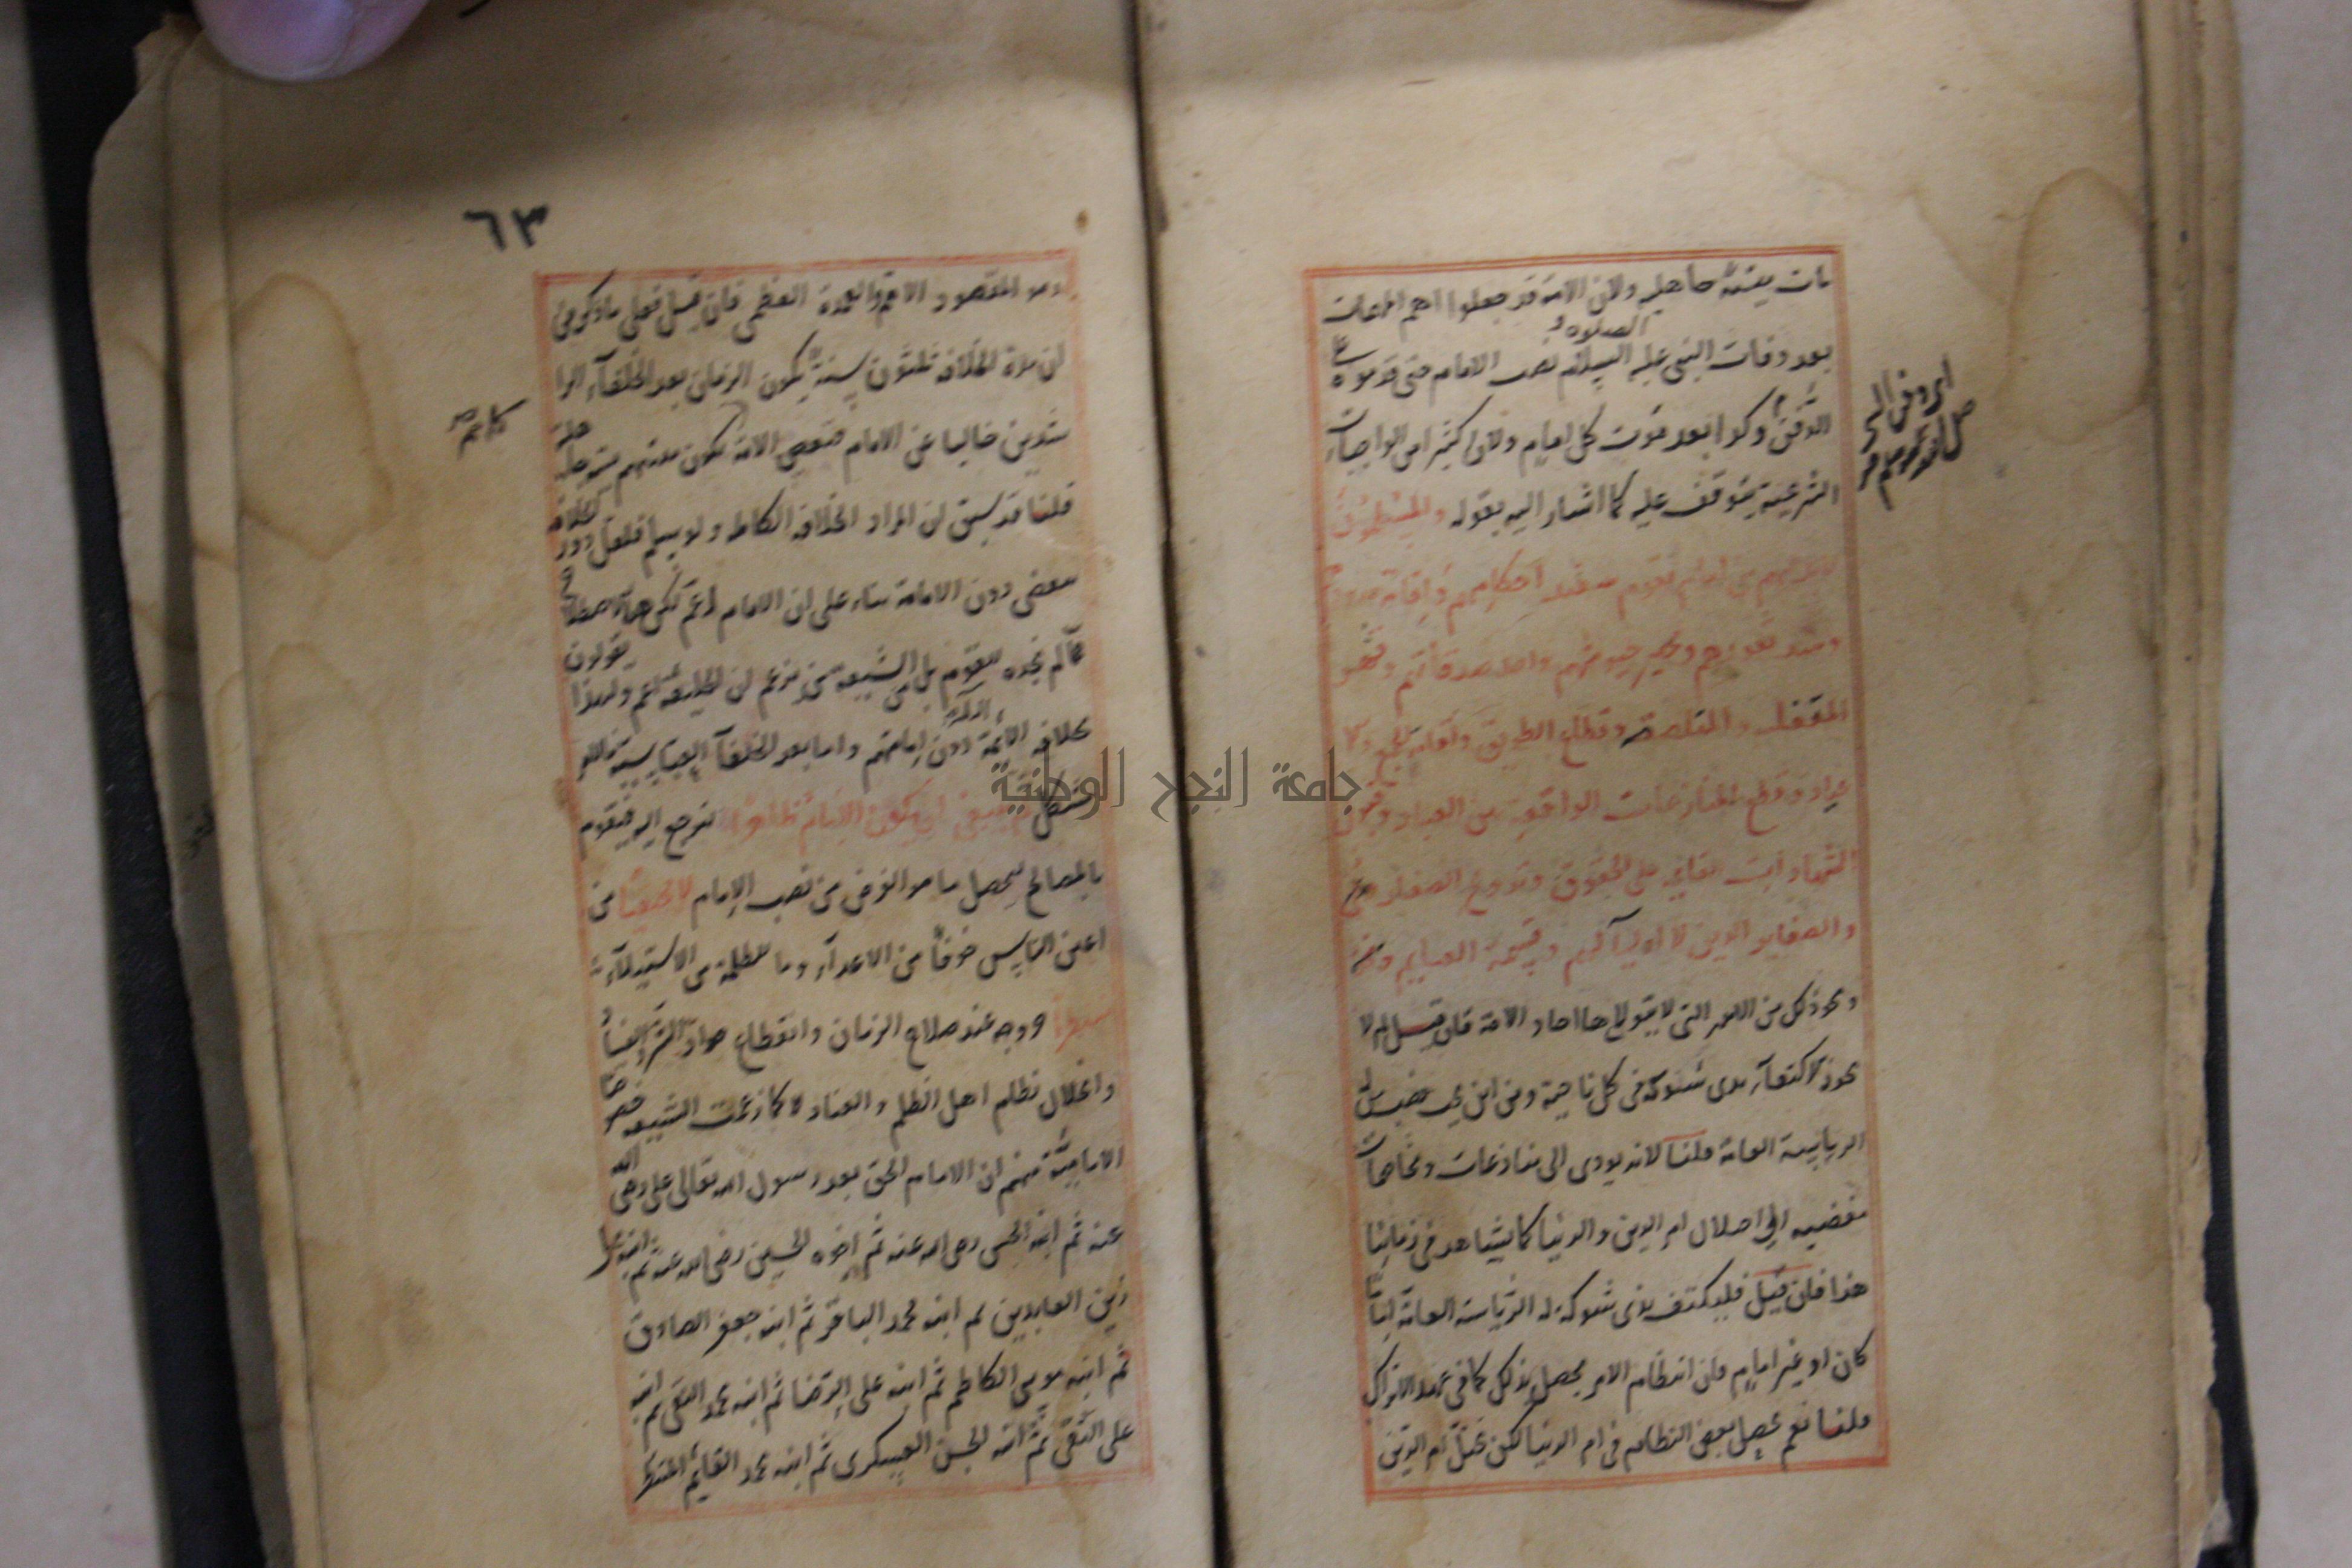 مات ميتة جاهلية ولان الامة قد جعلوا اهم المهمات
بعد وفات النبي عليه الصلاة و السلام نصب الامام حتى قدموه ع
الدفن وكذا بعد موت كل امام ولان كثيرا من الواجبات
الشرعية يتوقف عليه كما اشار اليه بقوله والمسلمون
لابد لهم من امام يقوم بتنفيذ احكامهم واقامة حدودهم
وسد ثغورهم وتجهيز جيوشهم واخذ صدقاتهم وقهر
المتغلبة والمتلصصة وقطاع الطريق واقامة الجمع والا
عياد وقطع المنازعات الواقعة بين العباد وقبول
الشهادات القائمة على الحقوق وتزويج الصغار
والصغاير الذين لا اولياء لهم وقسمة الغنايم
ونحو ذلك من الامور التي لا يتولاها احاد الامة فان قيل لم لا
يجوز الاكتفاء بذي شوكة في كل ناحية ومن اين يجب نصب من له
الرياسة العامة قلنا لانه يودي الى منازعات ومخاصمات
مفضية الى اختلال امر الدين والدنيا كما يشاهد في زماننا
هذا فان قيل فليكتف بذي شوكة له الرياسة العامة اماما
كان او غير امام فان انتظام الامر يحصل بذلك كما في عهد الاتراك
قلنا نعم يحصل بعض النظام في امر الدنيا لكن يختل امر الدين
٦٣
وهو المقصود الاهم والعمدة العظمى فان قيل فعلى ما ذكر من
ان مدة الخلافة ثلثون سنة يكون الزمان بعد الخلفاء الرا
شدين خاليا عن الامام فتعصي الامة كلهم وتكون ميتتهم ميتة جاهلية
قلنا قد سبق ان المراد الخلافة الكاملة ولو سلم فلعل دور الخلافة
ينقضي دون الامامة بناء على ان الامام اعم لكن هذا الاصطلاح
مما لم نجده للقوم بل من الشيعة من يزعم ان الخليفة اعم ولهذا يقولون
بخلافة الائمة الثلثة دون امامتهم واما بعد الخلفاء العباسية فالامر
مشكل ثم ينبغي ان يكون الامام ظاهرا ليرجع اليه فيقوم
بالمصالح ليحصل ما هو الغرض من نصب الامام لا مختفيا من
اعين الناس خوفا من الاعداء وما للظلمة من الاستيلاء
منتظرا خروجه عند صلاح الزمان وانقطاع مواد الشر والفساد
وانحلال نظام اهل الظلم والعناد لا كما زعمت الشيعة خصوصا
الامامية منهم ان الامام الحق بعد رسول الله تعالى علي رضي الله
عنه ثم ابنه الحسن رضي الله عنه ثم اخوه الحسين رضي الله عنه ثم ابنه علي
زين العابدين ثم ابنه محمد الباقر ثم ابنه جعفر الصادق
ثم ابنه موسى الكاظم ثم ابنه علي الرضا ثم ابنه محمد التقي ثم ابنه
علي النقي ثم ابنه الحسن العسكري ثم ابنه محمد القايم المنتظر
جامعة النجاح الوطنية